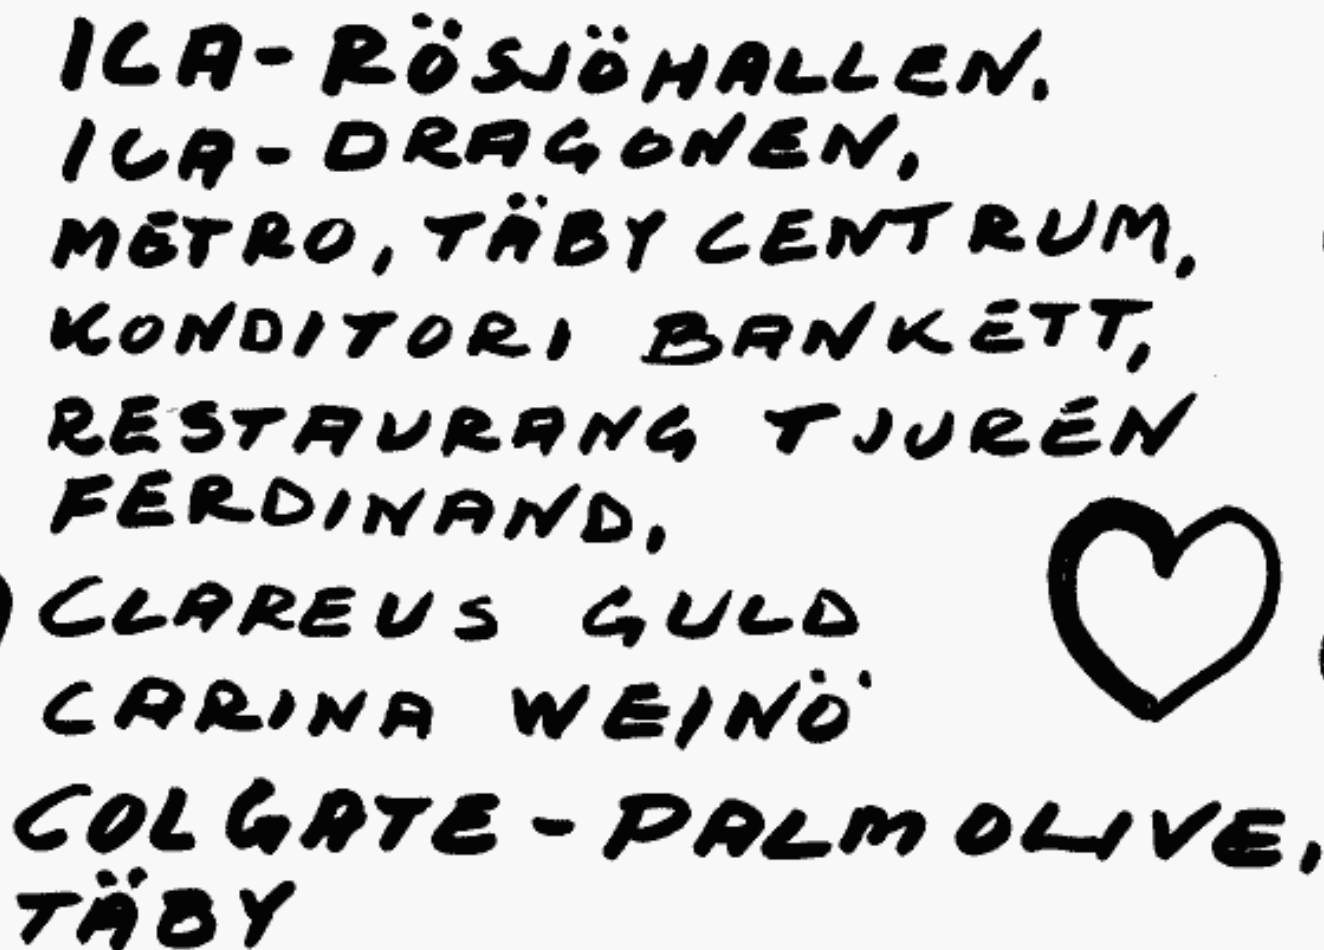 ICA-RÖSJÖHALLEN.
ICA-DRAGONEN,
METRO, TÄBY CENTRUM,
KONDITORI BANKETT,
RESTAURANG TJUREN
FERDINAND,
CLAREUS GULD
CARINA WEINÖ
COLGATE-PALMOLIVE,
TÄBY